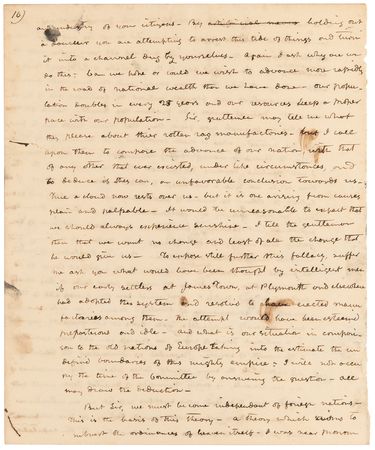 16)
and industry of your citizens - By artificial means holding out
a douceur you are attempting to arrest this tide of things and turn
it into a channel dug by yourselves - Again I ask why are we to
do this? Can we hope or could we wish to advance more rapidly
in the road of national wealth than we have done - our popu-
lation doubles in every 25 years and our resources keep a proper
pace with our population - Sir, gentlemen may tell me what
they please about their rotten rag manufactories - but I call
upon them to compare the advance of our nation with that
of any other that ever existed, under like circumstances, and
to deduce if they can, an unfavorable conclusion towards us -
True a cloud now rests over us - but it is one arising from causes
plain and palpable - It would be unreasonable to expect that
we should always experience sunshine - I tell the gentlemen
then that we want no change and least of all the change that
he would give us - To expose still further this fallacy, suffer
me ask you what would have been thought by intelligent men
if our early settlers at James Town, at Plymouth and elsewhere
had adopted this system and resolved to have erected manu
factories among them - the attempt would have been esteemed
preposterous and idle - and what is our situation in comparison
to the old nations of Europe taking into the estimate the un
defined boundaries of this mighty empire? I will not occu
py the time of the Committee by answering the question - all
may draw the deduction -
But Sir, we must become independent of foreign nations -
this is the basis of this theory - a theory which seems to
subvert the ordinances of heaven itself - I was near